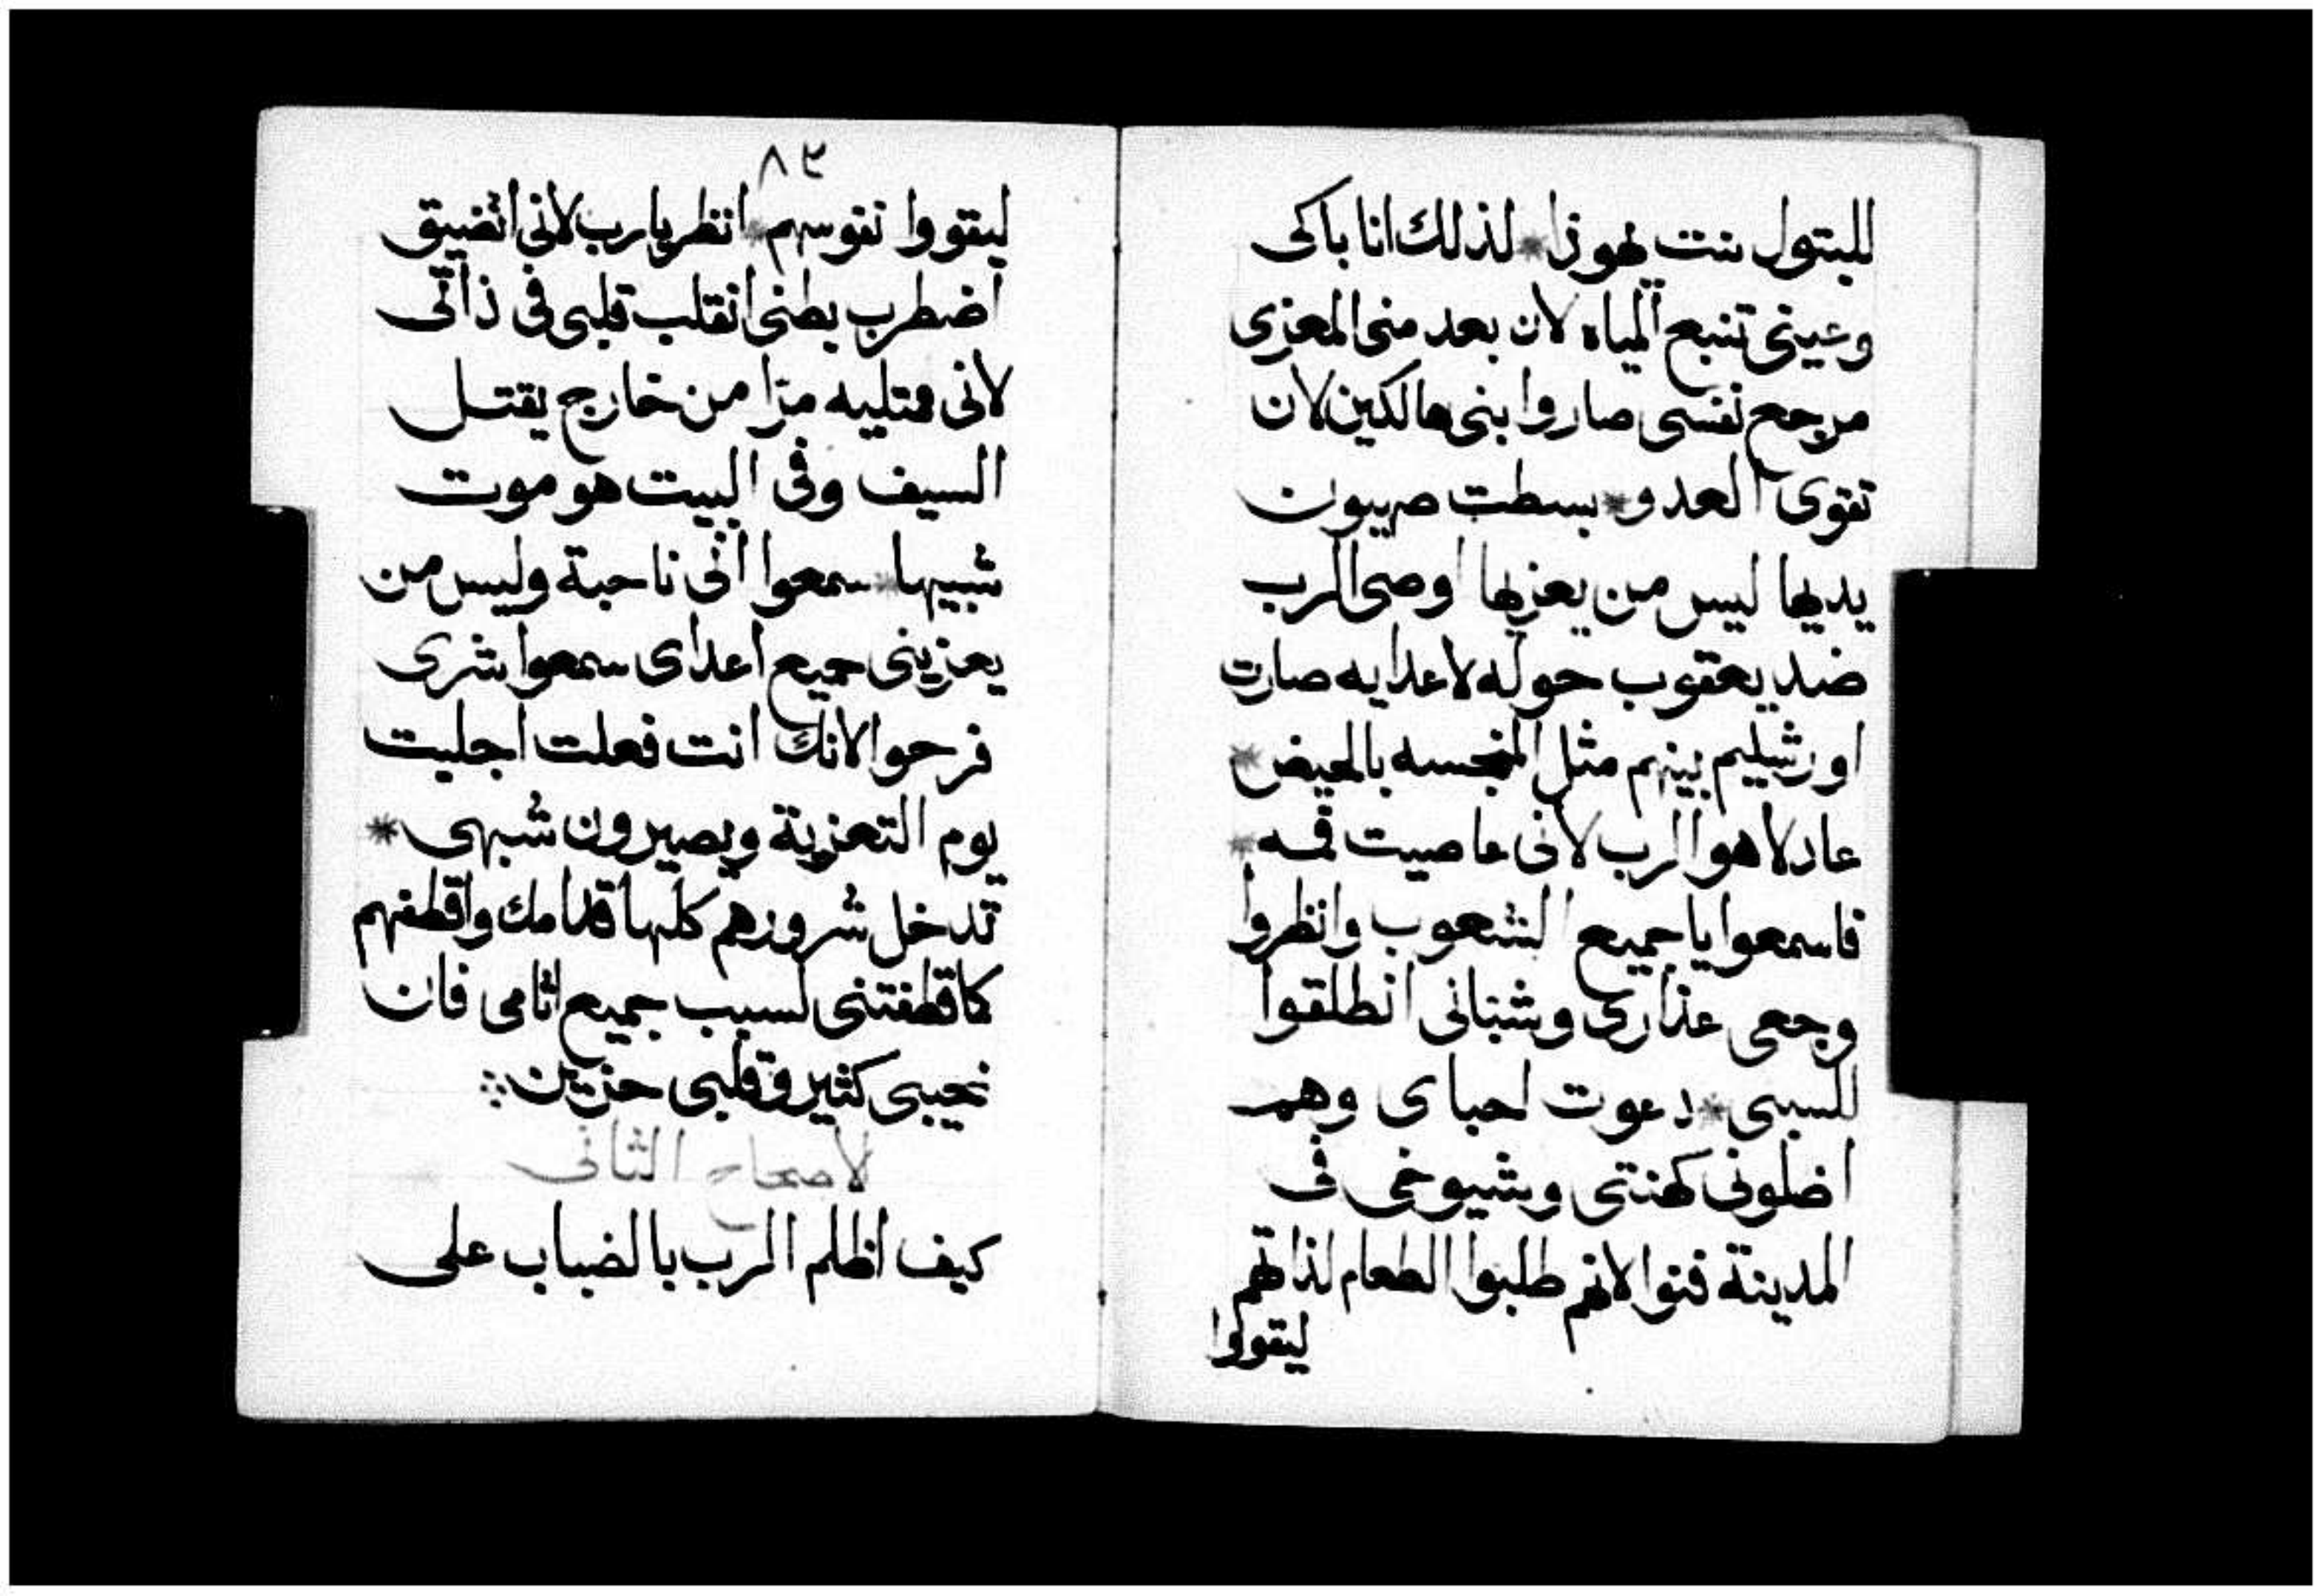 للبتول بنت يهوذا * لذلك انا باكى
وعينى تنبع المياه لان بعد منى المعزى
مرجع نفسى صاروا بنى هالكين لان
تقوى العدو * بسطت صهيون
يديها ليس من يعزيها اوصى الرب
ضد يعقوب حوله لاعدايه صارت
اورشليم بينهم مثل المنجسه بالحيض *
عادلا هو الرب لانى عاصيت فمه *
فاسمعوا يا جميع الشعوب وانظروا
وجعى عذارى وشبانى انطلقوا
للسبى * دعوت احباى وهم
اضلونى كهنتى وشيوخى فى
المدينة فنوا لانهم طلبوا الطعام لذاتهم
ليقووا
٨٣
ليقووا نفوسهم * انظر يا رب لانى اتضيق
اضطرب بطنى انقلب قلبى فى ذاتى
لانى ممتليه مرا من خارج يقتل
السيف وفى البيت هو موت
شبيها * سمعوا انى ناحبة وليس من
يعزينى جميع اعداى سمعوا شرى
فرحوا لانك انت فعلت اجليت
يوم التعزية ويصيرون شبهى *
تدخل شرورهم كلها قدامك واقطفهم
كما قطفتنى لسبب جميع اثامى فان
نحيبى كثير وقلبى حزين
الاصحاح الثانى
كيف اظلم الرب بالضباب على